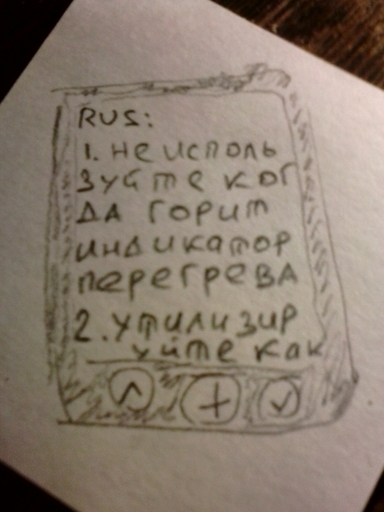 RUS:
1. не исполь
зуйте ког
да горит
индикатор
перегрева
2. утилизир
уйте как